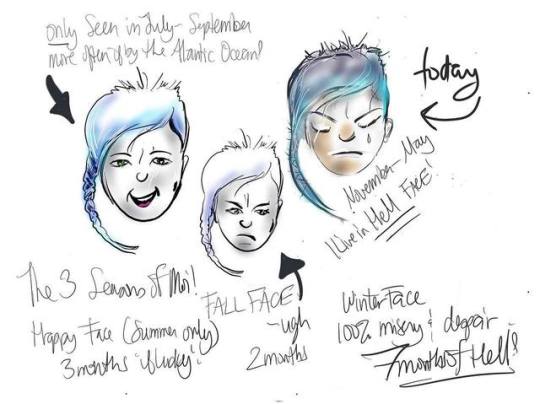 only Seen in July - September
more often if by the Atlantic Ocean!
today
November - May
I Live in Hell
FREE!
The 3 Seasons of Moi!
Happy Face (Summer only)
3 months 'if lucky'.
FALL FACE
- ugh
2 months
Winter Face
100% misery & despair
7 months of Hell!